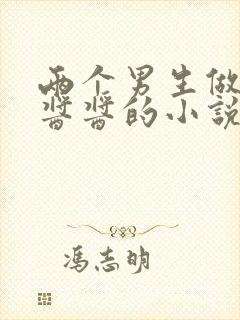 两个男生做
酱酱的小说
冯志明